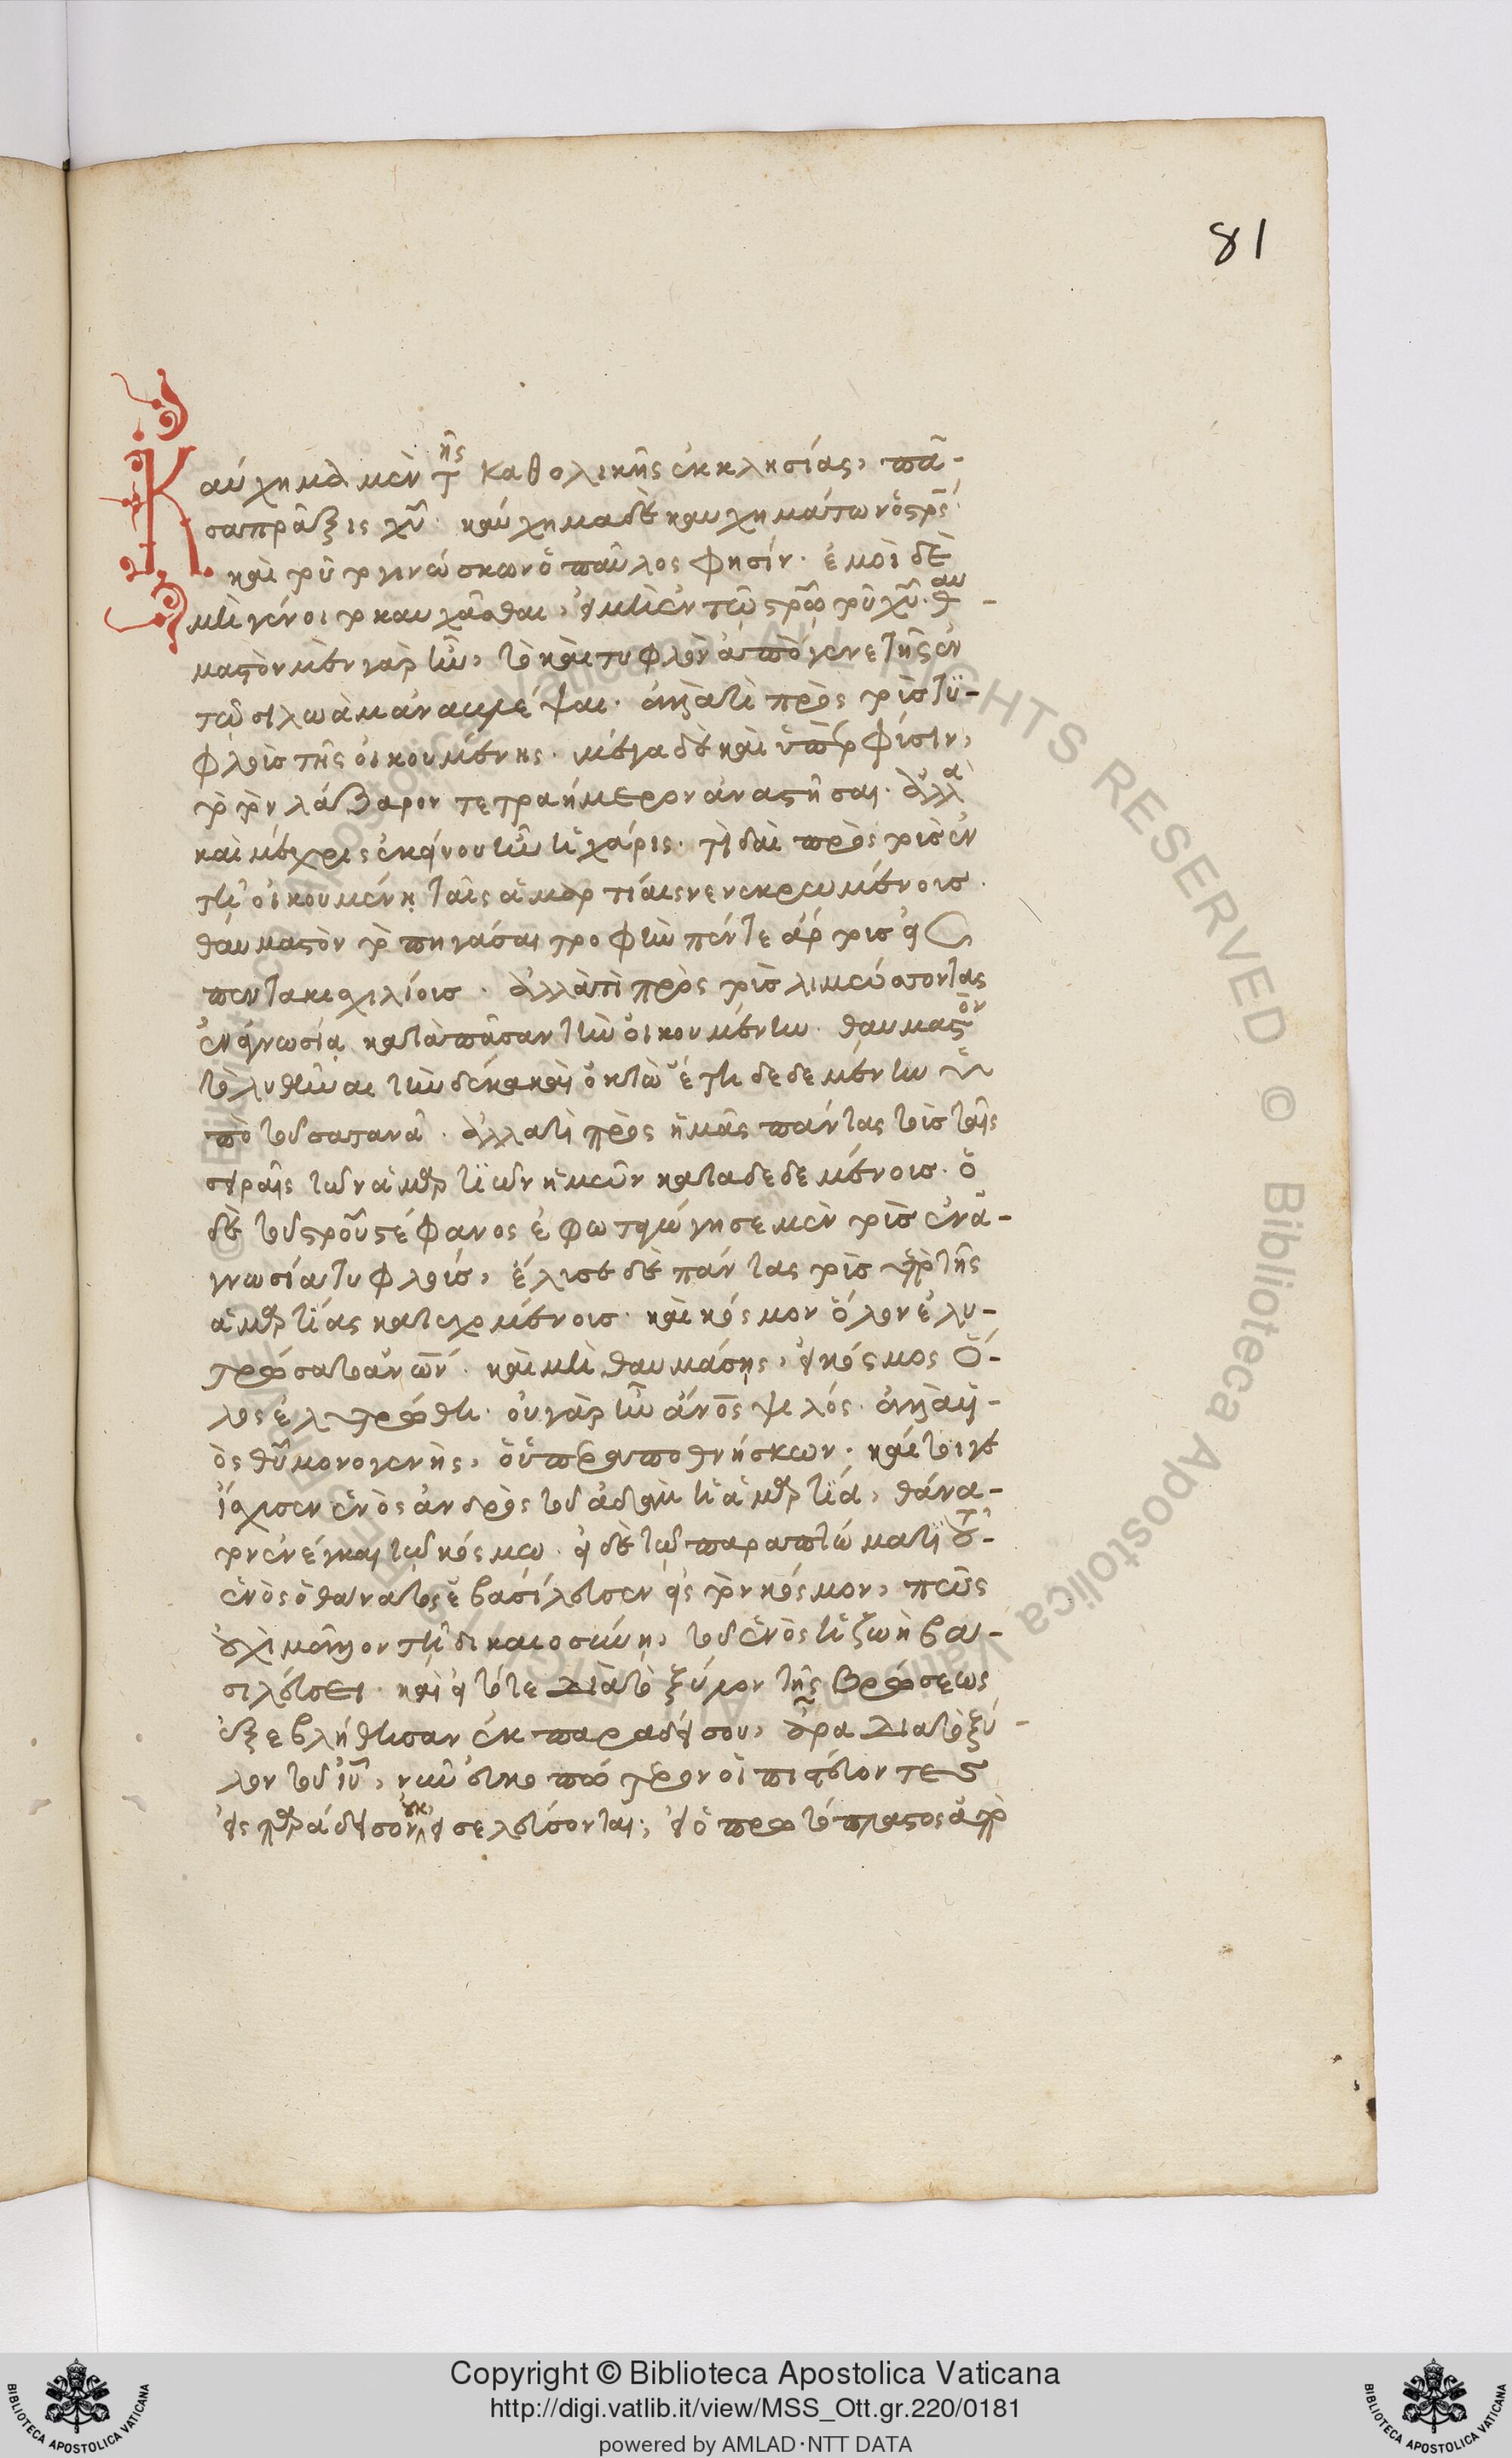 81
Καύχημα μὲν τῆς καθολικῆς ἐκκλησίας, πᾶ-
σα πρᾶξις χῦ. καύχημα δὲ καυχημάτων ὁ σρς.
καὶ τοῦτο γινώσκων ὁ παῦλος φησίν. ἐμοὶ δὲ
μὴ γένοιτο καυχᾶσθαι, εἰ μὴ ἐν τῷ σρῶ τοῦ χῦ. θαυ-
μαστὸν μὲν γὰρ ἦν, τὸ καὶ τυφλὸν ἀπὸ γενετῆς ἐν
τῷ σιλωὰμ ἀναβλέψαι. ἀλλὰ τί πρὸς τοὺς τυ-
φλοὺς τῆς οἰκουμένης. μέγα δὲ καὶ ὑπὲρ φύσιν,
τὸ τὸν λάζαρον τετραήμερον ἀναστῆσαι. ἀλλὰ
καὶ μέχρις ἐκείνου ἦν ἡ χάρις. τί δαὶ πρὸς τοὺς ἐν
τῇ οἰκουμένῃ ταῖς ἁμαρτίαις νενεκρωμένους.
θαυμαστὸν τὸ πηγάσαι τροφὴν πέντε ἄρτους εἰς
πεντακισχιλίους. ἀλλὰ τί πρὸς τοὺς λιμώττοντας
ἐν ἀγνωσίᾳ κατὰ πᾶσαν τὴν οἰκουμένην. θαυμαστὸν
τὸ λυθῆναι τὴν δέκα καὶ ὀκτὼ ἔτη δεδεμένην ὑ
πὸ τοῦ σατανᾶ. ἀλλὰ τί πρὸς ἡμᾶς πάντας τοὺς ταῖς
σειραῖς τῶν ἁμαρτιῶν ἡμῶν καταδεδεμένους. ὁ
δὲ τοῦ σροῦ στέφανος ἐφωταγώγησε μὲν τοὺς ἐν ἀ-
γνωσίᾳ τυφλούς, ἔλυσε δὲ πάντας τοὺς ὑπὸ τῆς
ἁμαρτίας κατεχομένους. καὶ κόσμον ὅλον ἐλυ-
τρώσατο ἀνων. καὶ μὴ θαυμάσῃς, εἰ κόσμος ὅ-
λος ἐλυτρώθη. οὐ γὰρ ἦν ἄνος ψιλός. ἀλλὰ υἱ-
ὸς θῦ μονογενὴς, ὁ ὑπεραποθνήσκων. καί τοι γε
ἴσχυσεν ἑνὸς ἀνδρὸς τοῦ ἀδὰμ ἡ ἁμαρτία, θάνα-
τον ἐνέγκαι τῷ κόσμῳ. εἰ δὲ τῷ παραπτώματι τοῦ
ἑνὸς ὁ θάνατος ἐβασίλευσεν εἰς τὸν κόσμον, πῶς
οὐχὶ μᾶλλον τῇ δικαιοσύνῃ, τοῦ ἑνὸς ἡ ζωὴ βα-
σιλεύσει. καὶ εἰ τότε διὰ τὸ ξύλον τῆς βρώσεως
ἐξεβλήθησαν ἐκ παραδείσου, ἆρα διὰ τὸ ξύ-
λον τοῦ ἰῦ, νῦν εὐκοπώτερον οἱ πιστεύοντες
εἰς παράδεισον οὐκ εἰσελεύσονται; εἰ ὁ πρωτόπλαστος ὁ ἀπὸ
Copyright © Biblioteca Apostolica Vaticana
http://digi.vatlib.it/view/MSS_Ott.gr.220/0181
powered by AMLAD·NTT DATA